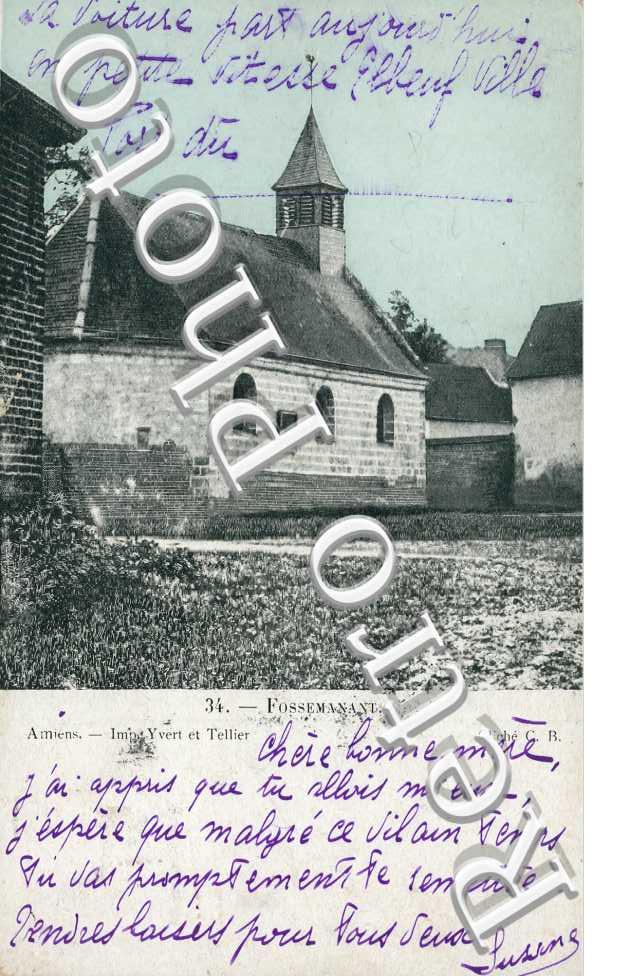 La voiture part aujourd'hui
en petite vitesse Elbeuf Ville
Port dû
34. — FOSSEMANANT
Amiens. — Imp. Yvert et Tellier
Cliché C. B.
Chère bonne mère,
j'ai appris que tu allois mieux,
j'espère que malgré ce vilain temps
tu vas promptement te remettre
Tendres baisers pour tous deux
Suzanne
Retro Photo